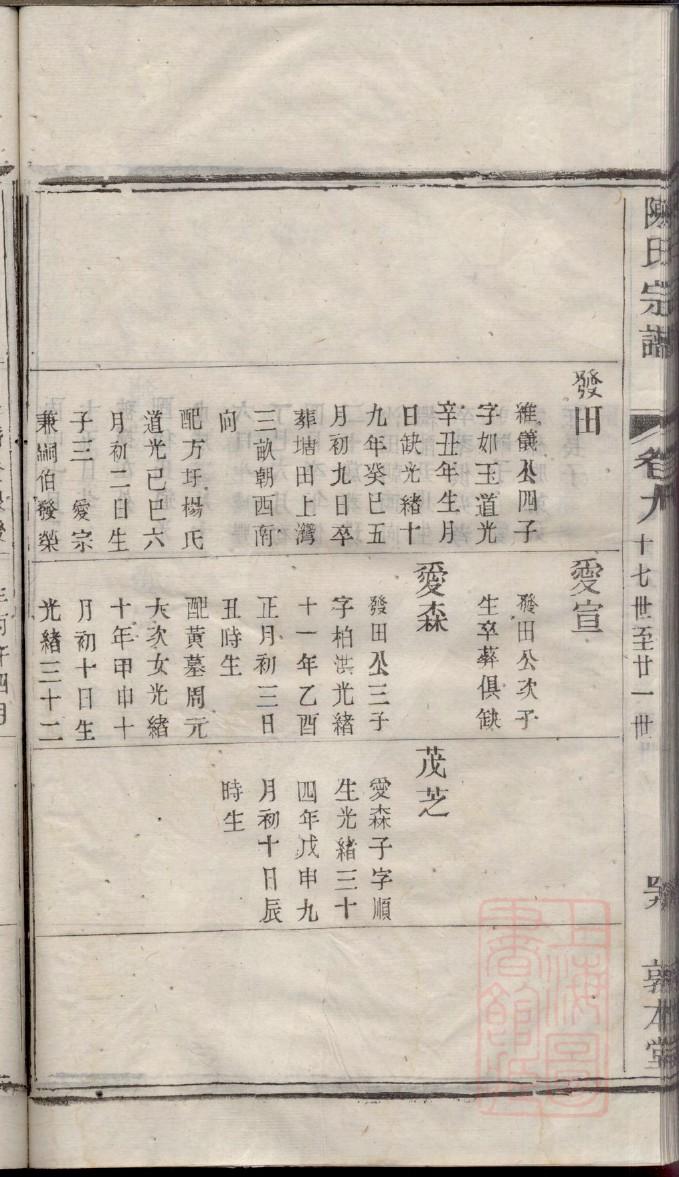 陳氏宗譜
卷九
十七世至廿一世
敦本堂
發田
維儀公四子
字如玉道光
辛丑年生月
日缺光緒十
九年癸巳五
月初九日卒
葬塘田上灣
三畝朝西南
向
配方圩楊氏
道光己巳六
月初二日生
子三 愛宗
兼嗣伯發榮
愛宣
發田公次子
生卒葬俱缺
愛森
發田公三子
字柏洪光緒
十一年乙酉
正月初三日
丑時生
配黃墓周元
大次女光緒
十年甲申十
月初十日生
光緒三十二
茂芝
愛森子字順
生光緒三十
四年戊申九
月初十日辰
時生
上海圖書館藏